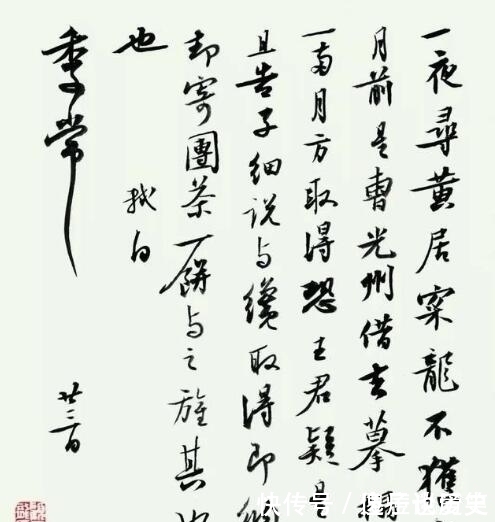 一夜尋黃居寀龍不獲
月前是曹光州借去摹
一兩月方取得恐王君疑是
且告子細說与纔取得即納
却寄團茶一餅与之旌其
也
軾白
季常
廿三日
快传号/